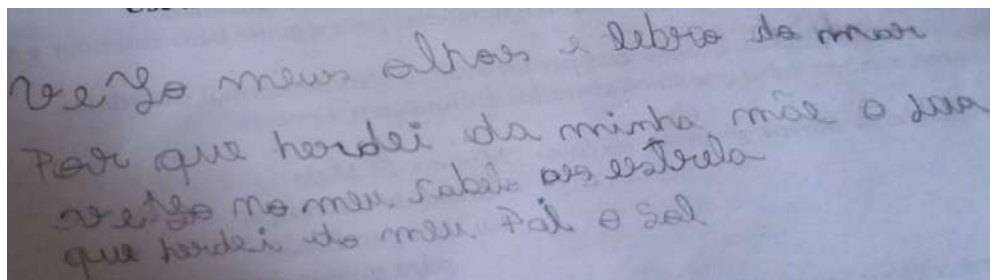 vejo meus olhos e lebro do mar
Por que herdei da minha mãe o sua
vejo no meu cabelo as estrela
que herdei do meu Pai o Sol